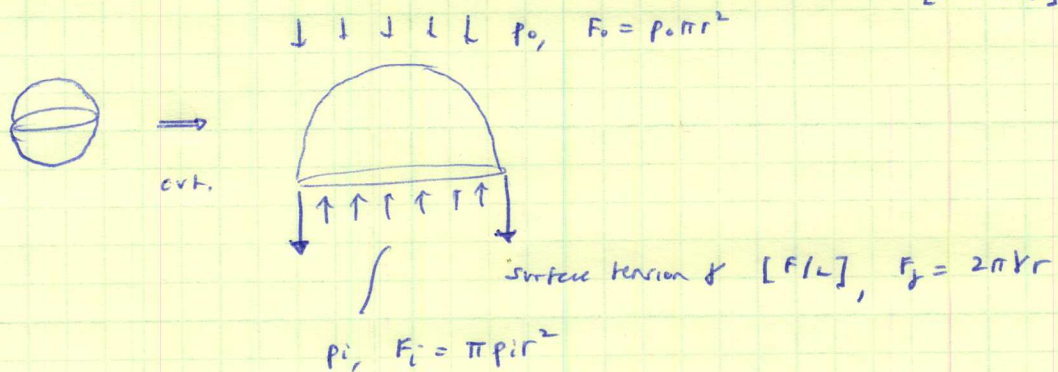 p₀, F₀ = p₀πr²
cut.
surface tension γ [F/L], F_γ = 2πγr
pᵢ, Fᵢ = πpᵢr²